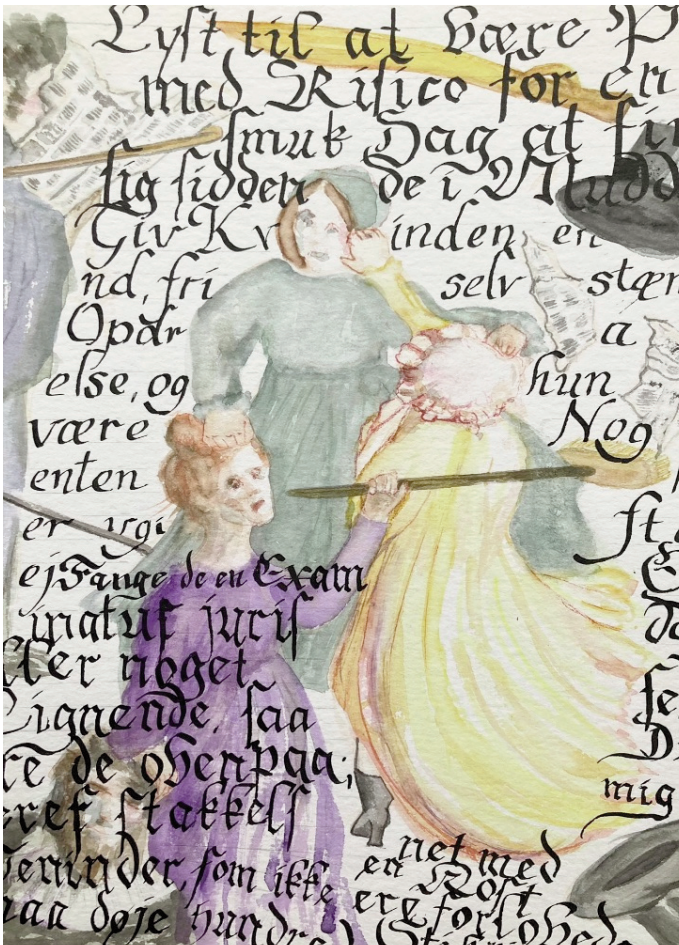 Lyst til at være P
med Risico for en
smuk Dag at fin
sig siddende i Mudd
Giv Kvinden en
nd, fri selvstæn
Opdr a
else, og hun
være Nog
enten
er ygi st
ej Fange de en Exam
inatus juris
ller noget
Lignende, saa
re de ovenpaa;
eres stakkels mig
Veninder, som ikke en net med
Kost
maa døje hundred ere forst